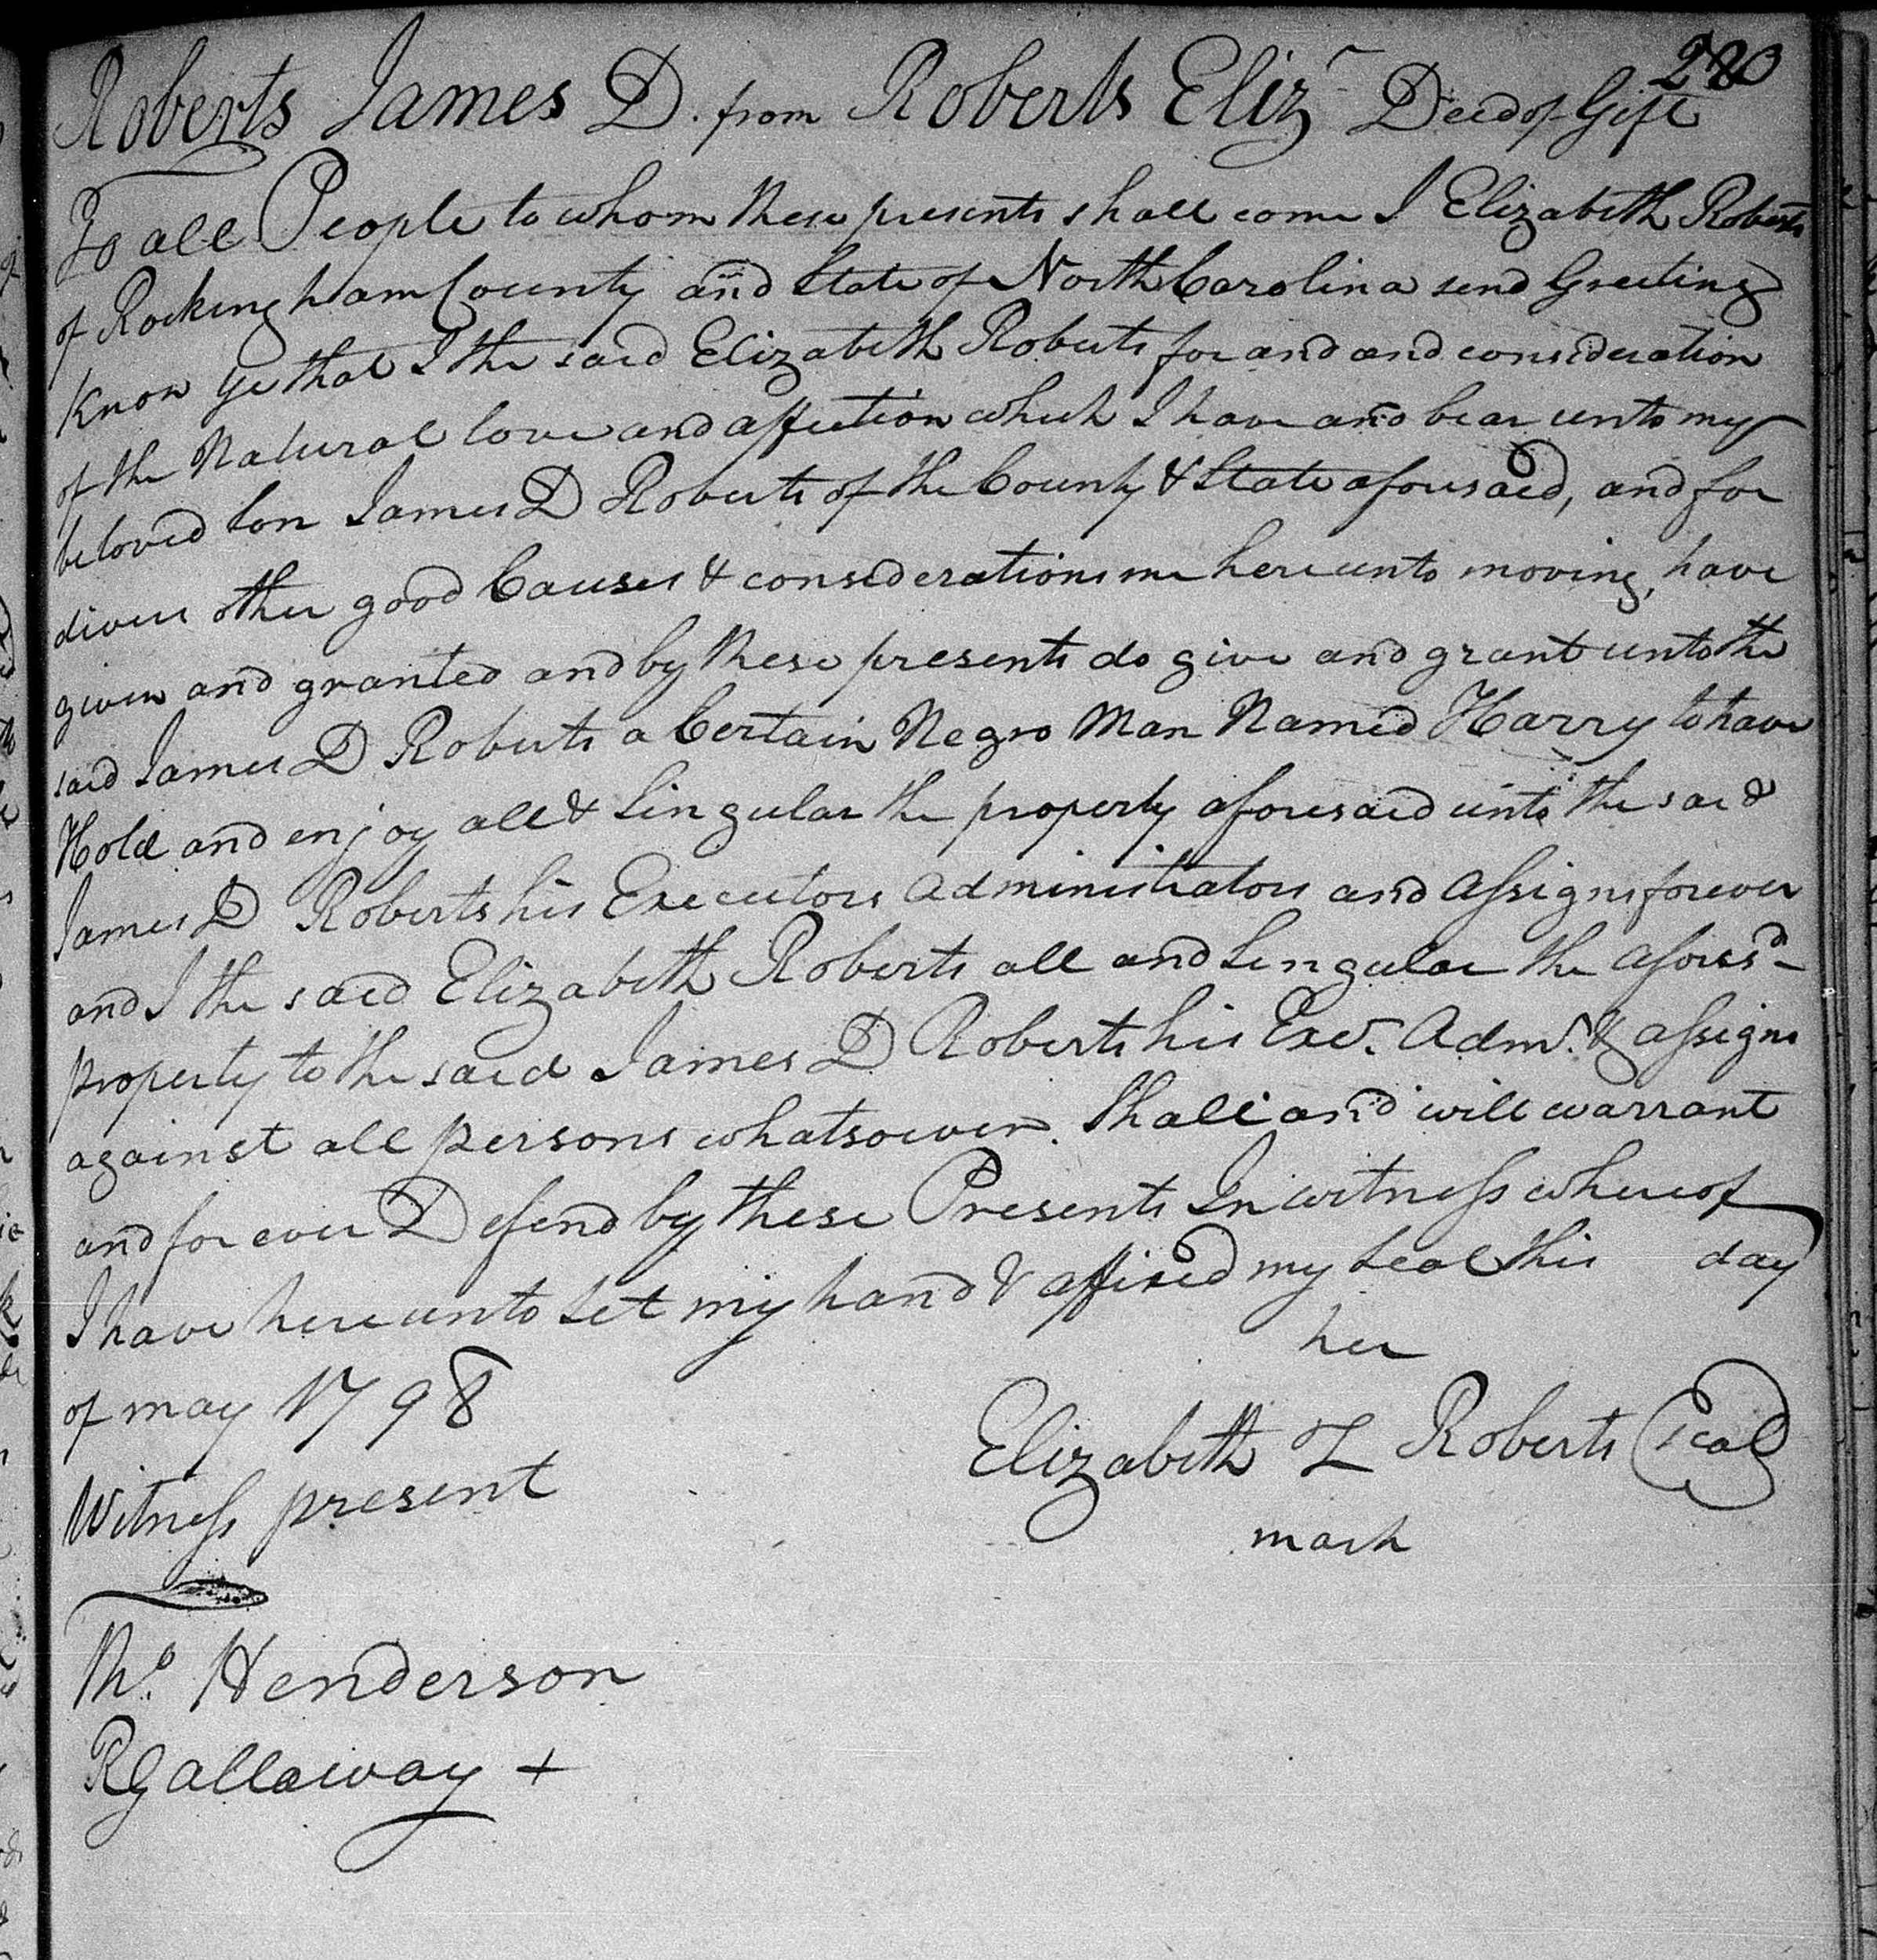 280
Roberts James D. from Roberts Eliz Deed of Gift
To all People to whom these presents shall come I Elizabeth Roberts
of Rockingham County and State of North Carolina send Greeting
Know ye that I the said Elizabeth Roberts for and and consideration
of the Natural love and affection which I have and bear unto my
beloved Son James D Roberts of the County & State aforesaid, and for
divers other good Causes & considerations me hereunto moving, have
given and granted and by these presents do give and grant unto the
said James D Roberts a Certain Negro Man Named Harry to have
Hold and enjoy all & Singular the property aforesaid unto the said
James D Roberts his Executors Administrators and Assigns forever
and I the said Elizabeth Roberts all and Singular the afores.d
property to the said James D Roberts his Exr. Admr. & assigns
against all persons whatsoever. Shall and will warrant
and for ever Defend by these Presents In witness whereof
I have hereunto Set my hand & affixed my Seal this day
of may 1798
her
Elizabeth Roberts Seal
mark
Witness present
Tho. Henderson
R Gallaway +